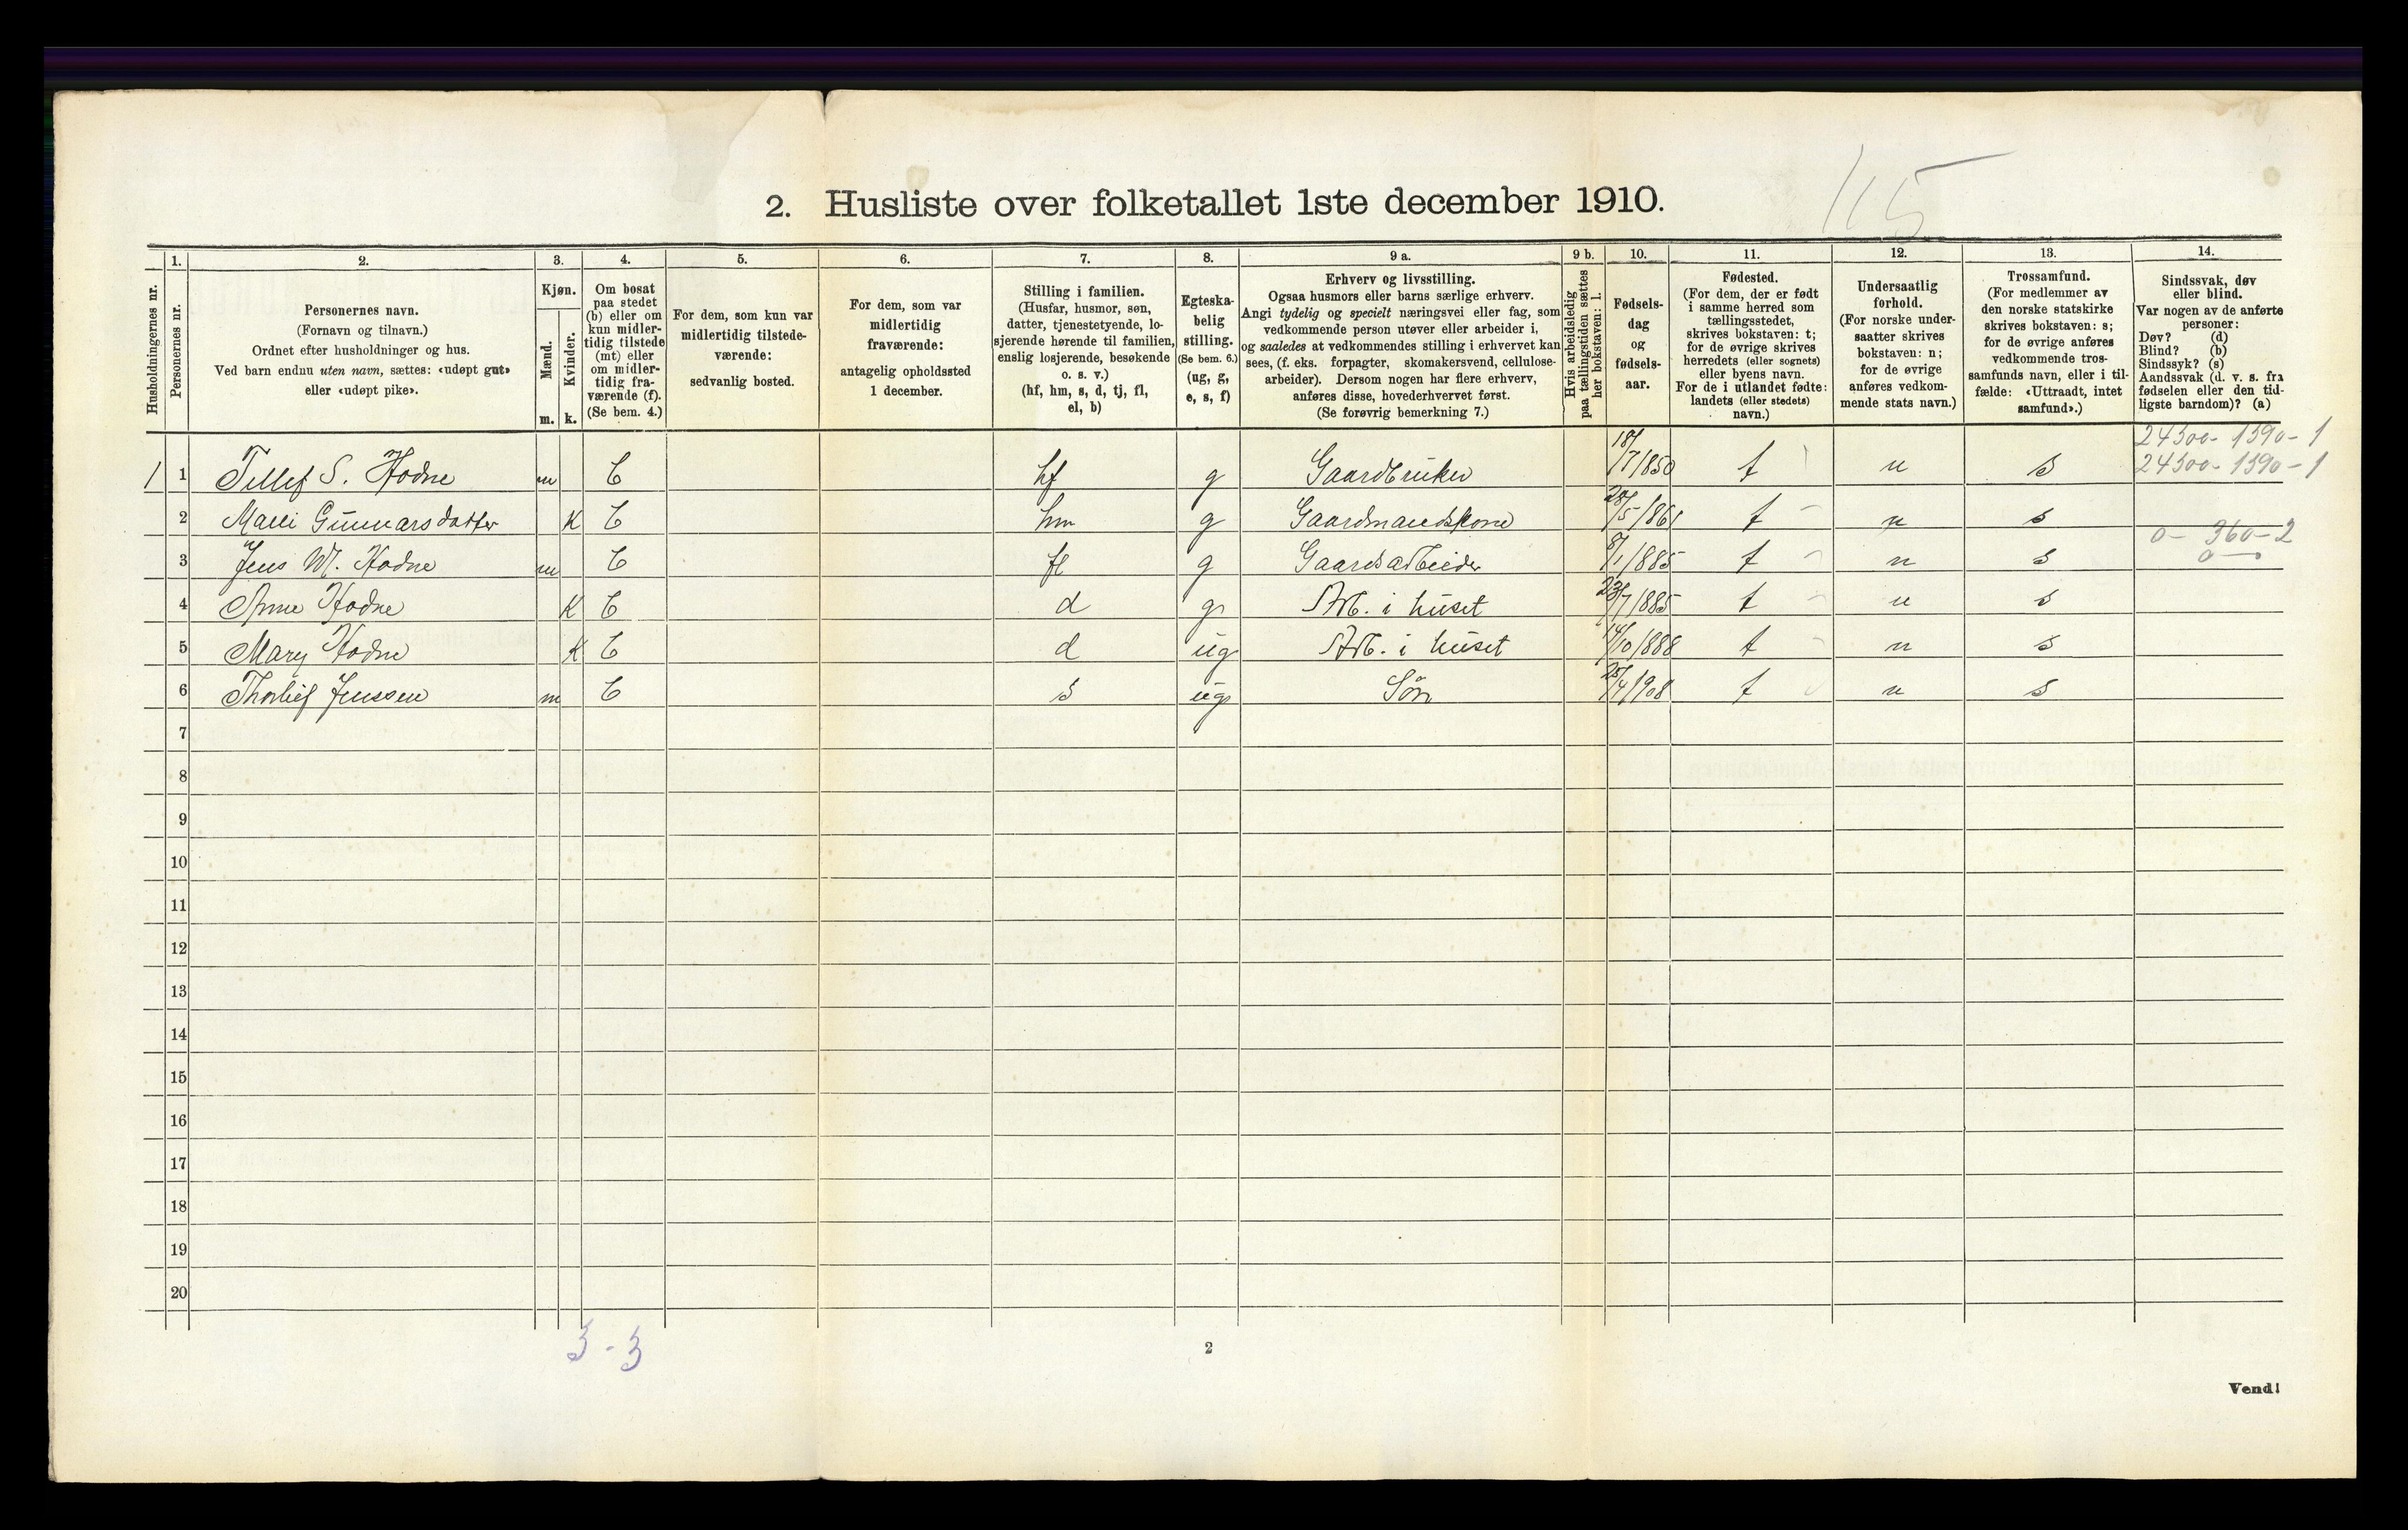 115
2. Husliste over folketallet 1ste december 1910.
Husholdningernes nr.
1. Personernes nr.
2. Personernes navn.
(Fornavn og tilnavn.)
Ordnet efter husholdninger og hus.
Ved barn endnu uten navn, sættes: «udøpt gut»
eller «udøpt pike».
3. Kjøn.
Mænd. Kvinder.
m. k.
4. Om bosat
paa stedet
(b) eller om
kun midler-
tidig tilstede
(mt) eller
om midler-
tidig fra-
værende (f).
(Se bem. 4.)
5. For dem, som kun var
midlertidig tilstede-
værende:
sedvanlig bosted.
6. For dem, som var
midlertidig
fraværende:
antagelig opholdssted
1 december.
7. Stilling i familien.
(Husfar, husmor, søn,
datter, tjenestetyende, lo-
sjerende hørende til familien,
enslig losjerende, besøkende
o. s. v.)
(hf, hm, s, d, tj, fl,
el, b)
8. Egteska-
belig
stilling.
(Se bem. 6.)
(ug, g,
e, s, f)
9 a. Erhverv og livsstilling.
Ogsaa husmors eller barns særlige erhverv.
Angi tydelig og specielt næringsvei eller fag, som
vedkommende person utøver eller arbeider i,
og saaledes at vedkommendes stilling i erhvervet kan
sees, (f. eks. forpagter, skomakersvend, cellulose-
arbeider). Dersom nogen har flere erhverv,
anføres disse, hovederhvervet først.
(Se forøvrig bemerkning 7.)
9 b. Hvis arbeidsledig
paa tællingstiden sættes
her bokstaven: l.
10. Fødsels-
dag
og
fødsels-
aar.
11. Fødested.
(For dem, der er født
i samme herred som
tællingsstedet,
skrives bokstaven: t;
for de øvrige skrives
herredets (eller sognets)
eller byens navn.
For de i utlandet fødte:
landets (eller stedets)
navn.)
12. Undersaatlig
forhold.
(For norske under-
saatter skrives
bokstaven: n;
for de øvrige
anføres vedkom-
mende stats navn.)
13. Trossamfund.
(For medlemmer av
den norske statskirke
skrives bokstaven: s;
for de øvrige anføres
vedkommende tros-
samfunds navn, eller i til-
fælde: «Uttraadt, intet
samfund».)
14. Sindssvak, døv
eller blind.
Var nogen av de anførte
personer:
Døv? (d)
Blind? (b)
Sindssyk? (s)
Aandssvak (d. v. s. fra
fødselen eller den tid-
ligste barndom)? (a)
24300 - 1390 - 1
1 1 Tellef S. Hodne m b hf g Gaardbruker 18/7/850 t n s 24300 - 1390 - 1
2 Malli Gunnarsdatter K b hm g Gaardmandskone 28/5/861 t n s
0 - 360 - 2
3 Jens M. Hodne m b fl g Gaardsarbeider 8/1/885 t n s 0
4 Anne Hodne K b d g Arb. i huset 23/7/885 t n s
5 Mary Hodne K b d ug Arb. i huset 14/10/888 t n s
6 Thorleif Jenssen m b s ug Søn 25/4/908 t n s
7
8
9
10
11
12
13
14
15
16
17
18
19
20
3 - 3
2
Vend!